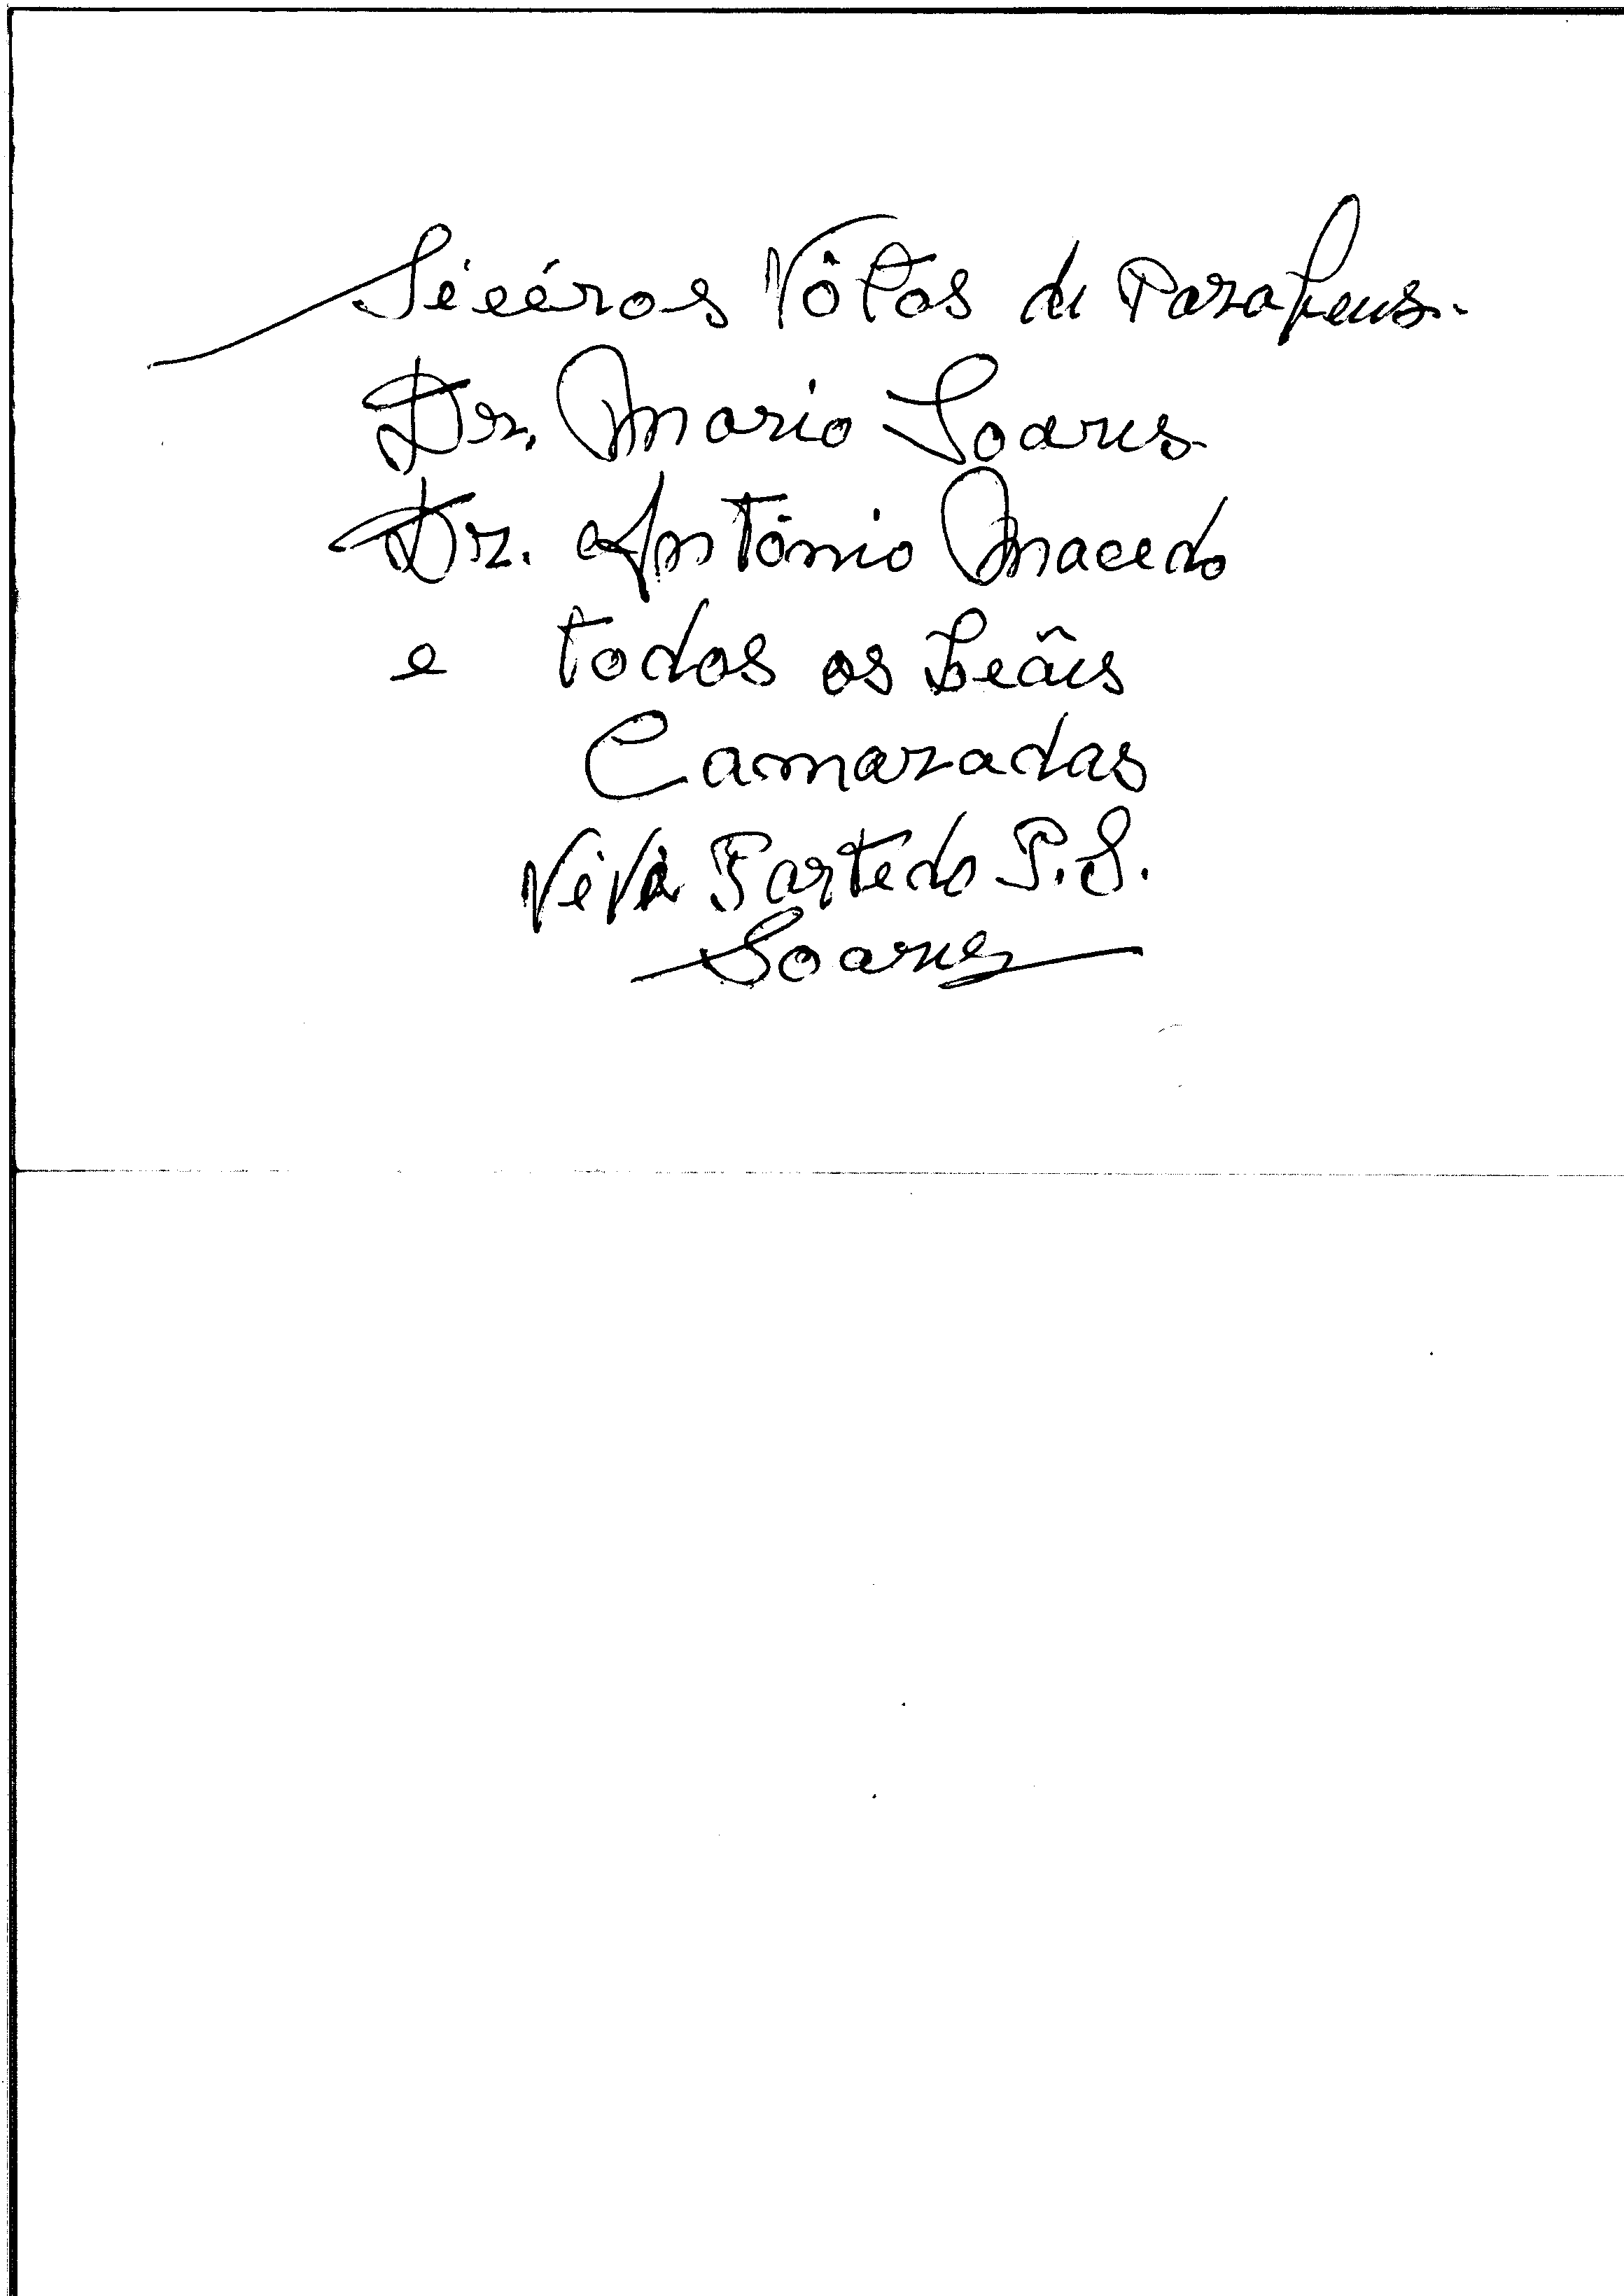 Sicéros Vôtos de Parabeus.
Dr. Mario Soares
Dr. António Macedo
e todos os Leâis
Camaradas
Viva Partido P.S.
Soares